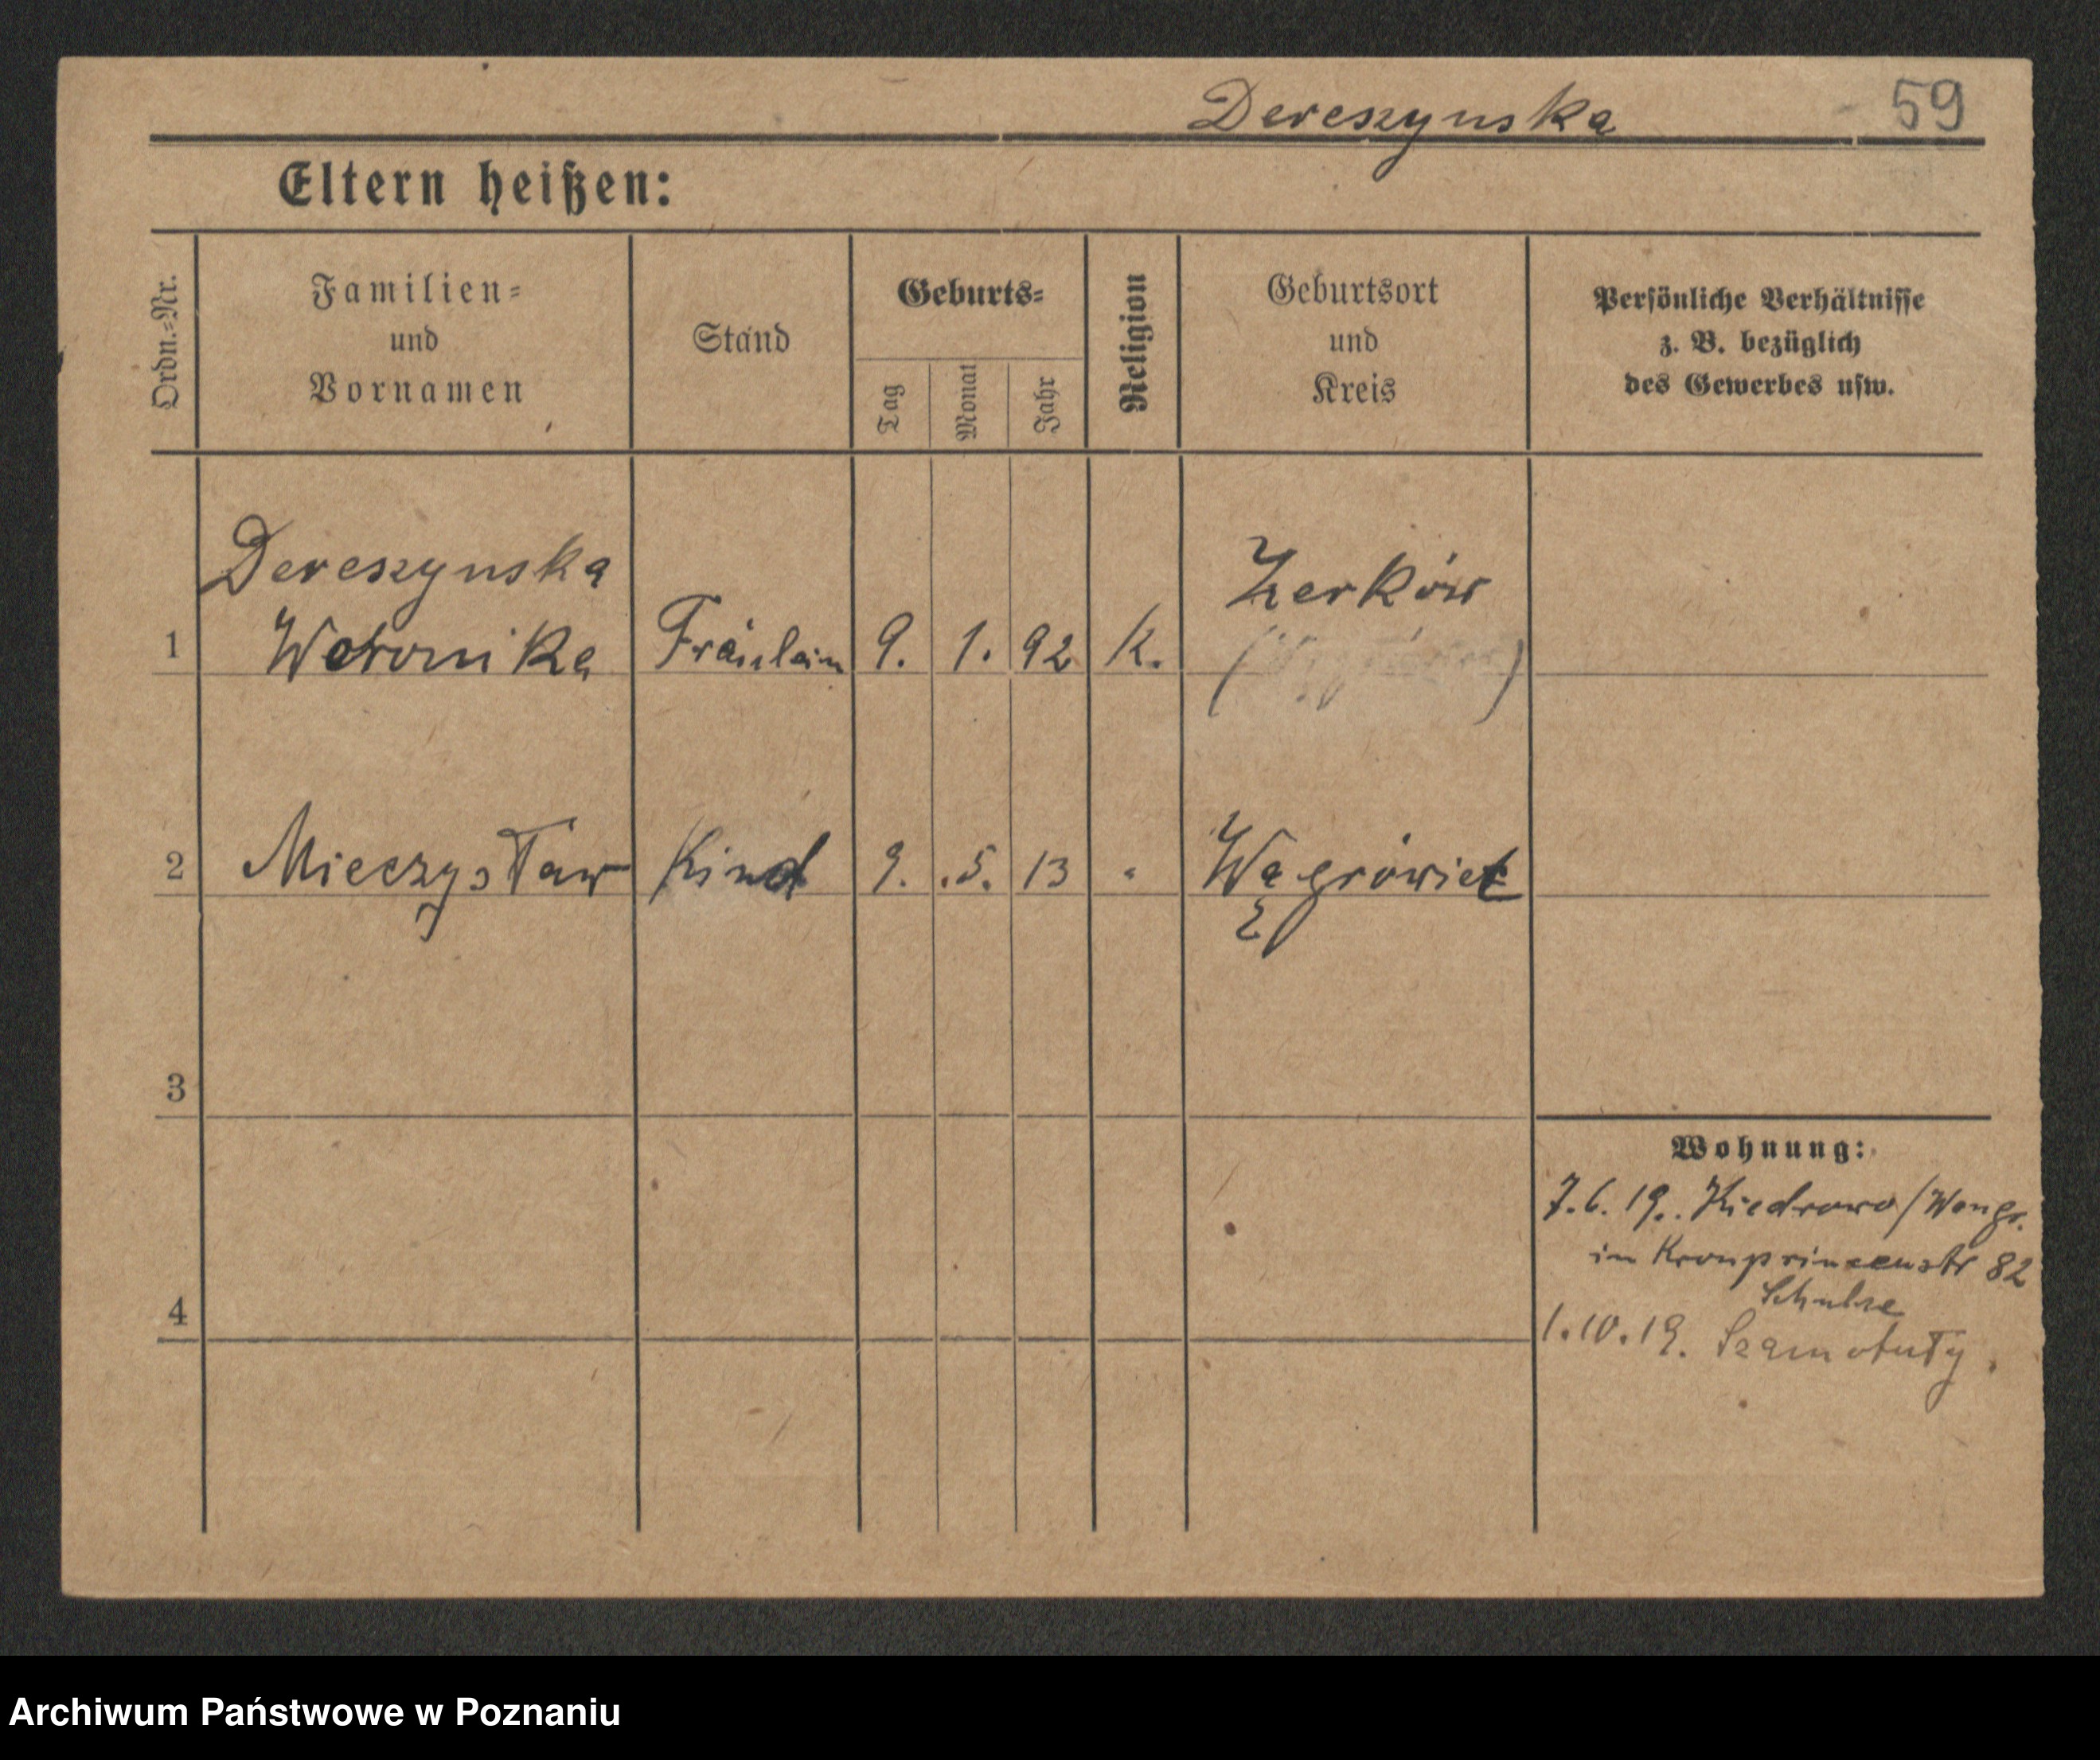 Dereszynska 59
Eltern heißen:
Ordn.=Nr.
Familien=
und
Vornamen
Stand
Geburts=
Tag
Monat
Jahr
Religion
Geburtsort
und
Kreis
Persönliche Verhältnisse
z. B. bezüglich
des Gewerbes usw.
Dereszynska Zerków
1 Weronika Fräulein 9. 1. 92 K.
2 Mieczysław Kind 9. 5. 13 " Wągrówiec
3
Wohnung:
7.6.19. Kiedrowo/Wongr.
in Kronprinzenstr 82
Schulze
4
1.10.19. Szamotuły.
Archiwum Państwowe w Poznaniu